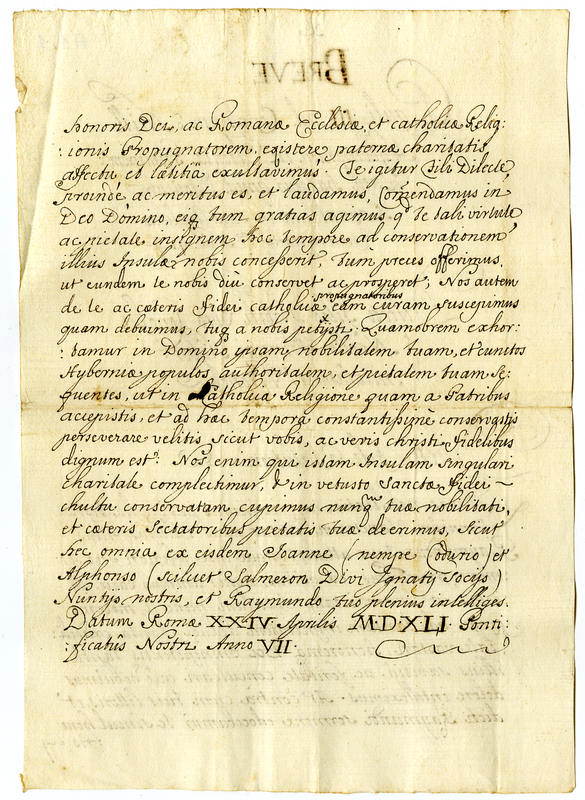 honoris Dei, ac Romanæ Ecclesiæ, et catholicæ Relig:
:ionis Propugnatorem, existere paternæ charitatis
affectu et lætitiâ exultavimus. Te igitur Fili Dilecte,
proindè ac meritus es, et laudamus, Comendamus in
Deo Domino, eiq tum gratias agimus qd Te tali virtute
ac pietate insignem hoc tempore ad conservationem
illius Insulæ nobis concesserit, tum preces offerimus,
ut eundem te nobis diu conservet ac prosperet, Nos autem
de te ac cæteris Fidei catholicæ propugnatoribus eam curam suscepimus
quam debuimus, tuq a nobis petijsti. Quamobrem exhor:
:tamur in Domino ipsam nobilitatem tuam, et cunctos
Hyberniæ populos authoritatem, et pietatem tuam se:
quentes, ut in Catholica Religione quam a Patribus
accepistis, et ad hæc tempora constantissimè conservastis
perseverare velitis sicut vobis, ac veris christi fidelibus
dignum est. Nos enim qui istam Insulam singulari
charitate complectimur, & in vetusto Sanctæ Fidei ~
chultu conservatam cupimus nunqm tuæ nobilitati,
et cæteris Sectatoribus pietatis tuæ deerimus, Sicut
hec omnia ex eisdem Joanne (nempe Codurio) et
Alphonso (Scilicet Salmeron Divi Ignatij Socijs)
Nuntijs nostris, et Raymundo tuo plenius intelliges.
Datum Romæ XXIV Aprilis M.D.XLI. Ponti:
:ficatûs Nostri Anno VII.